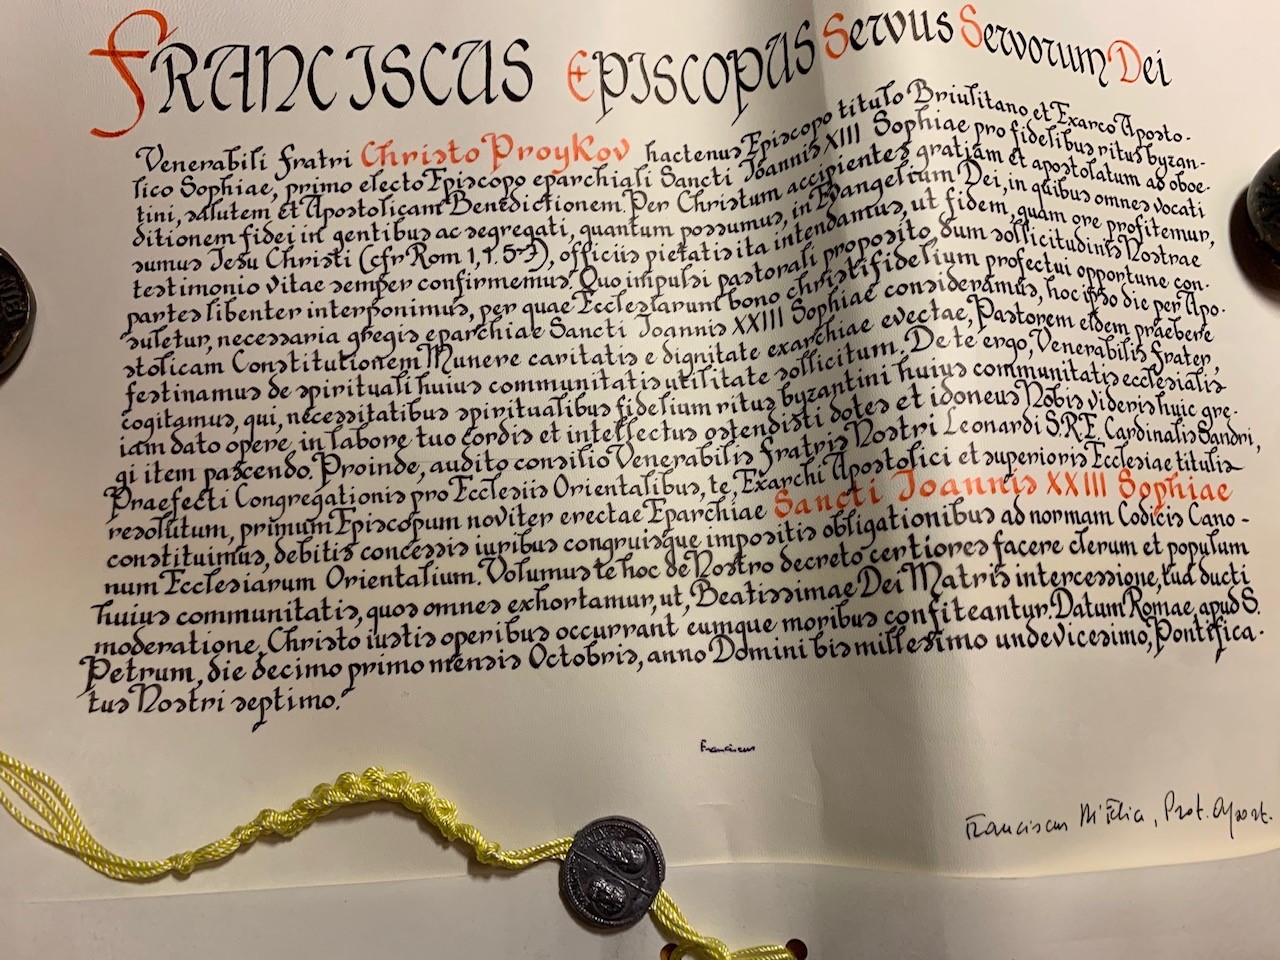 FRANCISCUS EPISCOPUS Servus Servorum Dei
Venerabili Fratri Christo Proykov hactenus Episcopo titulo Briulitano et Exarco Aposto-
lico Sophiae, primo electo Episcopo eparchiali Sancti Ioannis XXIII Sophiae pro fidelibus ritus byzan-
tini, salutem et Apostolicam Benedictionem. Per Christum accipientes gratiam et apostolatum ad oboe-
ditionem fidei in gentibus ac segregati, quantum possumus, in Evangelium Dei, in quibus omnes vocati
sumus Iesu Christi (cfr Rom 1, 1. 5-7), officiis pietatis ita intendamus, ut fidem, quam ore profitemur,
testimonio vitae semper confirmemus. Quo impulsi pastorali proposito, dum sollicitudinis Nostrae
partes libenter interponimus, per quae Ecclesiarum bono christifidelium profectui opportune con-
suletur, necessaria gregis eparchiae Sancti Ioannis XXIII Sophiae consideramus, hoc ipso die per Apo-
stolicam Constitutionem Munere caritatis e dignitate exarchiae evectae, Pastorem eidem praebere
festinamus de spirituali huius communitatis utilitate sollicitum. De te ergo, Venerabilis Frater,
cogitamus, qui, necessitatibus spiritualibus fidelium ritus byzantini huius communitatis ecclesialis
iam dato opere, in labore tuo cordis et intellectus ostendisti dotes et idoneus Nobis videris huic gre-
gi item pascendo. Proinde, audito consilio Venerabilis Fratris Nostri Leonardi S.R.E. Cardinalis Sandri,
Praefecti Congregationis pro Ecclesiis Orientalibus, te, Exarchi Apostolici et superioris Ecclesiae titulis
resolutum, primum Episcopum noviter erectae Eparchiae Sancti Ioannis XXIII Sophiae
constituimus, debitis concessis iuribus congruisque impositis obligationibus ad normam Codicis Cano-
num Ecclesiarum Orientalium. Volumus te hoc de Nostro decreto certiores facere clerum et populum
huius communitatis, quos omnes exhortamur, ut, Beatissimae Dei Matris intercessione, tua ducti
moderatione, Christo iustis operibus occurrant eumque moribus confiteantur. Datum Romae, apud S.
Petrum, die decimo primo mensis Octobris, anno Domini bis millesimo undevicesimo, Pontifica-
tus Nostri septimo.
Franciscus
Franciscus Di Felice, Prot. Apost.